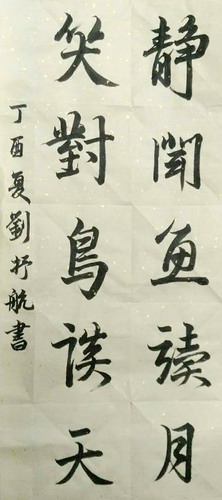 静聞魚讀月
笑對鳥談天
丁酉夏劉抒航書